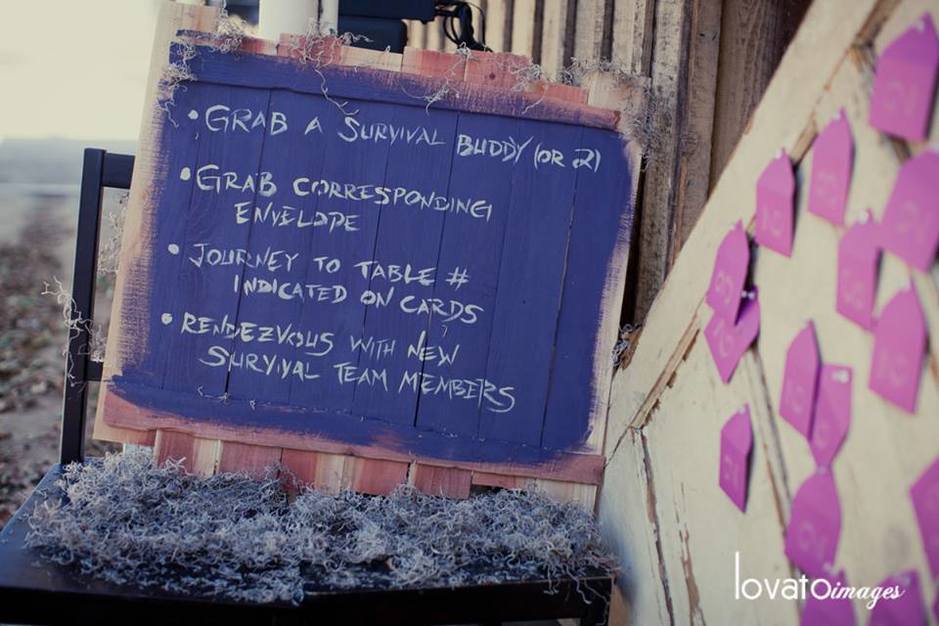 • GRAB A SURVIVAL BUDDY (OR 2)
• GRAB CORRESPONDING
ENVELOPE
• JOURNEY TO TABLE #
INDICATED ON CARDS
• RENDEZVOUS WITH NEW
SURVIVAL TEAM MEMBERS
lovatoimages